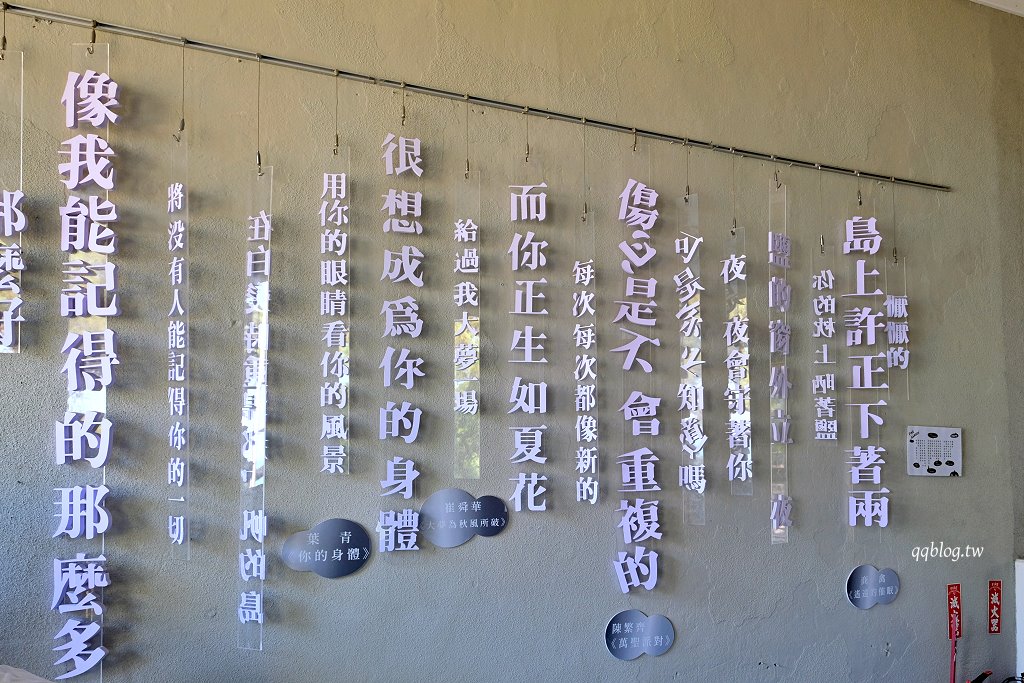 懨懨的
島上許正下著雨
你的枕上晒著鹽
鹽的窗外立 夜
夜 夜會守著你
知道嗎
傷心是不會重複的
每次每次都像新的
而你正生如夏花
給過我大夢 場
很想成爲你的身體
用你的眼睛看你的風景
在白 帆的島
將没有人能記得你的一切
像我能記得的那麼多
那麼好
商禽
《遙遠的催眠》
陳繁齊
《萬聖派對》
崔舜華
《大夢為秋風所破》
葉青
《你的身體》
滅火器
滅火器
qqblog.tw